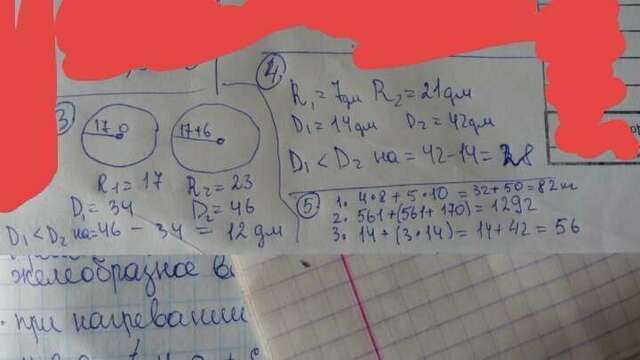 3
17
17+6
R₁ = 17 R₂ = 23
D₁ = 34 D₂ = 46
D₁ < D₂ на = 46 - 34 = 12 дм
4
R₁ = 7дм R₂ = 21дм
D₁ = 14дм D₂ = 42дм
D₁ < D₂ на = 42 - 14 = 28
5
1. 4·8 + 5·10 = 32 + 50 = 82 кг
2. 561 + (561 + 170) = 1292
3. 14 + (3·14) = 14 + 42 = 56
желеобразное
при нагревании